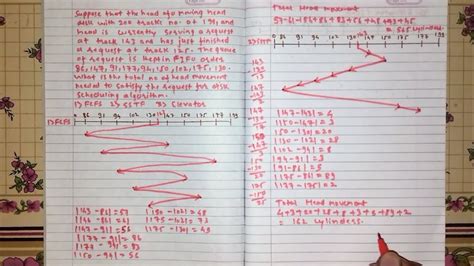 Suppose that the head of a moving head
disk with 200 tracks no. 0 to 199, and
head is currently serving a request
at track 143 and has just finished
a request at track 125. The queue
of request is kept in FIFO order
86, 147, 91, 177, 94, 150, 102, 175, 130.
What is the total no. of head movement
needed to satisfy the request for disk
scheduling algorithm.
1) FCFS 2) SSTF 3) Elevator
1) FCFS
0 86 91 94 102 130 147 150 175 177 199
|143-86|=57 |150-102|=48
|147-86|=61 |175-102|=73
|147-91|=56 |175-130|=45
|177-91|=86
|177-94|=83
|150-94|=56
Total Head movement
57+61+56+86+83+56+48+73+45
= 565 cylinders
2) SSTF
|147-143|=4
|150-147|=3
|150-130|=20
|130-102|=28
|102-94|=8
|94-91|=3
|91-86|=5
|175-86|=89
|177-175|=2
Total Head movement
4+3+20+28+8+3+5+89+2
= 162 cylinders.